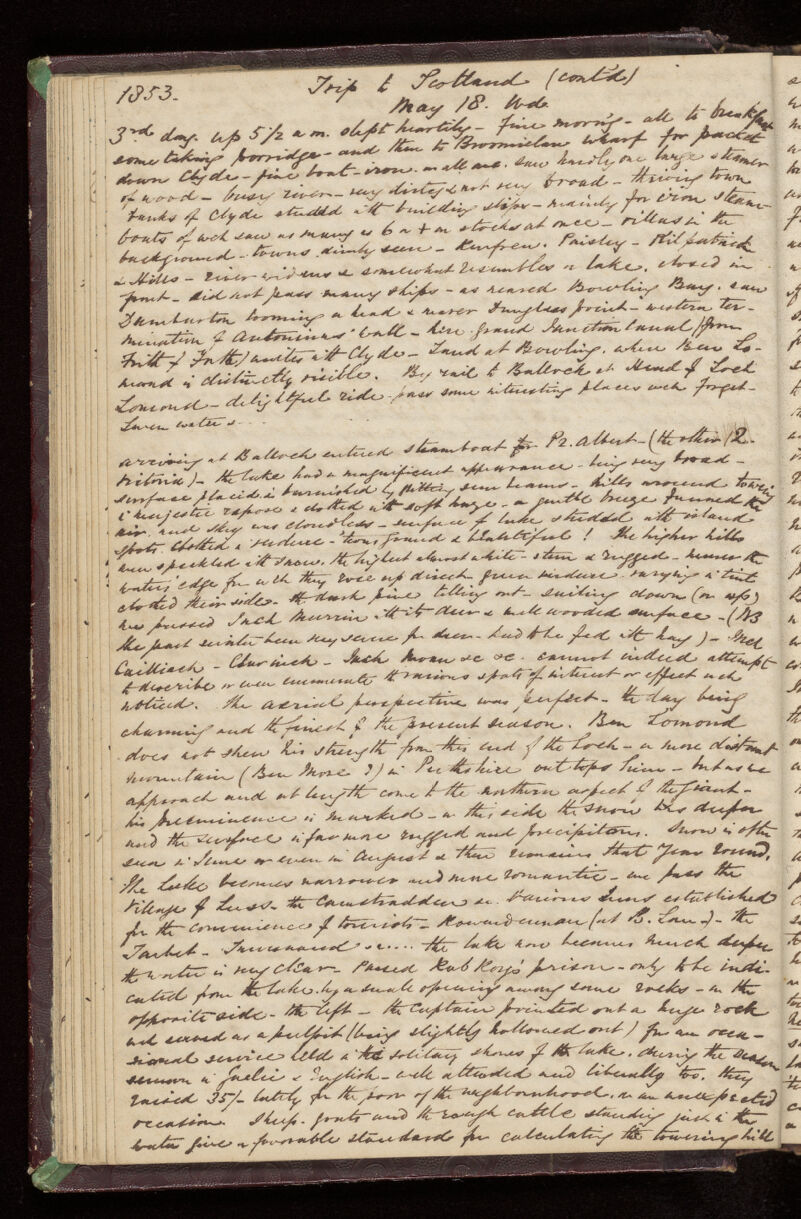 1853. Trip to Scotland (contd)
May 18. Wed.
3rd day. up 5 1/2 a m. slept heartily - Fine morng - all to breakfast
some taking porridge - and then to Broomielaw wharf for packet
down Clyde - fine boat - iron. in all are. saw hardly one large steamer
of wood - busy river - very dirty & not very broad - thriving town
banks of Clyde studded with building slips - mainly for iron steam-
boats of wch saw as many as 6 or 7 on stocks at once - villas in the
background - towns dimly seen - Renfrew. Paisley - Kilpatrick
& Hills - river widens & somewhat resembles a lake, closed in
front - did not pass many ships - as neared Bowling Bay. saw
Dumbarton looming a head & nearer Dunglass point - western ter-
mination of Antoninus' wall - here grand Junction Canal (from
Frith of Forth) unites with Clyde - Land at Bowling. where Ben Lo-
mond is distinctly visible. By rail to Balloch at Head of Loch
Lomond - delightful ride - pass some interesting places wch forget -
Leven water &...
arriving at Balloch entered steamboat Pr. Albert - (the other Q.
Victoria) - the lake had a magnificent appearance - being very broad -
surface placid & burnished by flitting sun beams - hills around towering
in majestic repose & clothed with soft haze - a gentle breeze fanned the
air and sky was cloudless - surface of lake studded with island
spots clothed in verdure - 'twas grand & beautiful! The higher hills
were speckled with snow, the highest almost white - stern & rugged - nearer the
waters' edge fm wch they rose up direct green verdure varying in tint
clothed their side - the dark pine telling out - sailing down (or up)
we passed Inch Murrin with its deer & well wooded surface - (NB
the past winter been very severe for deer - had to be fed with hay) - Inch
Cailliach - Clar inch - Inch Moan &c &c. cannot indeed attempt
to describe or even enumerate the various spots of interest or effect wch
noticed. The aerial perspective was perfect - the day being
charming and the finest of the present season. Ben Lomond
does not shew his strength from this end of the Loch - a more distant
mountain (Ben More ?) in Perthshire out tops him - but as we
approach and at length come to the northern aspect of the Giant -
his preeminence is marked - on this side the snow lies deeper
and the surface is far more rugged and precipitous. Snow is often
seen in June or even in August & then remains that year round.
The Lake becomes narrower and more romantic - we pass the
Village of Luss - the various Inns established
for the convenience of tourists - Rowardennan (at B. Lom.) - the
Tarbet - Inversnaid &c.... the lake now becomes much deeper
the water is very clear - Passed Rob Roy's prison - only to be indi-
cated from the lake by a small opening among some rocks - on the
opposite side - the left - the Captain pointed out a huge rock
wch served as a pulpit (being slightly hollowed out) for an occa-
sional service held in the solitary shores of the lake. during the season
sermon in Gaelic & English - well attended and liberally too. they
raised 35/- lately for the poor of the neighbourhood. on an unexpected
occasion. Sheep. goats and the rough cattle standing just in the
water give a favorable standard for calculating the towering hill